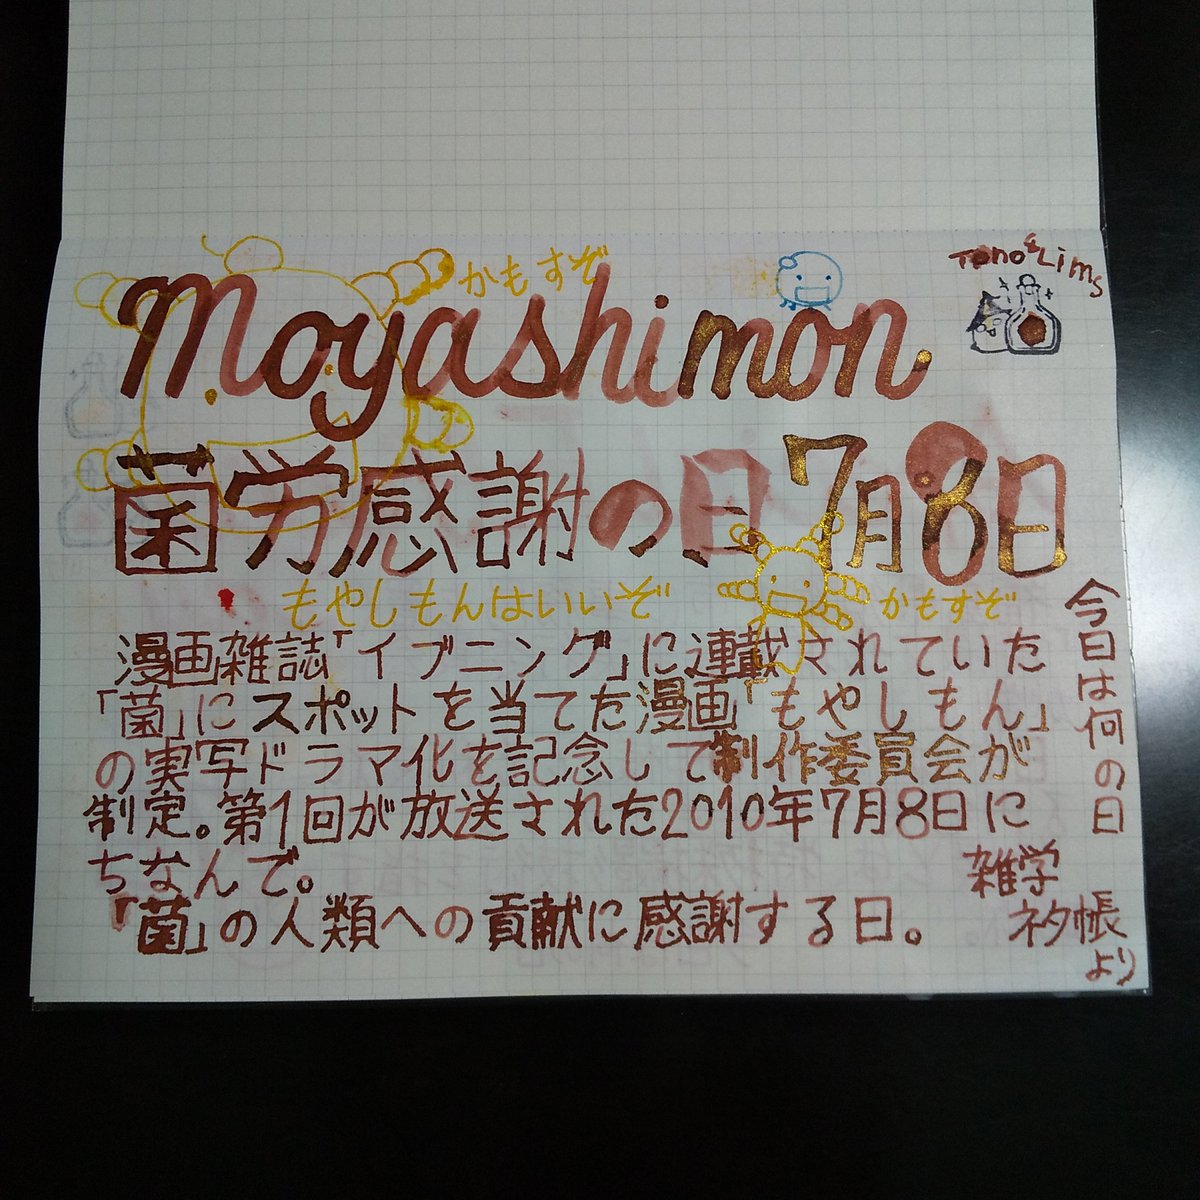 かもすぞ
Tono&Lims
Moyashimon
菌労感謝の日 7月8日
もやしもんはいいぞ
かもすぞ
漫画雑誌「イブニング」に連載されていた
「菌」にスポットを当てた漫画「もやしもん」
の実写ドラマ化を記念して制作委員会が
制定。第1回が放送された2010年7月8日に
ちなんで。
「菌」の人類への貢献に感謝する日。
今日は何の日
雑学
ネタ帳
より